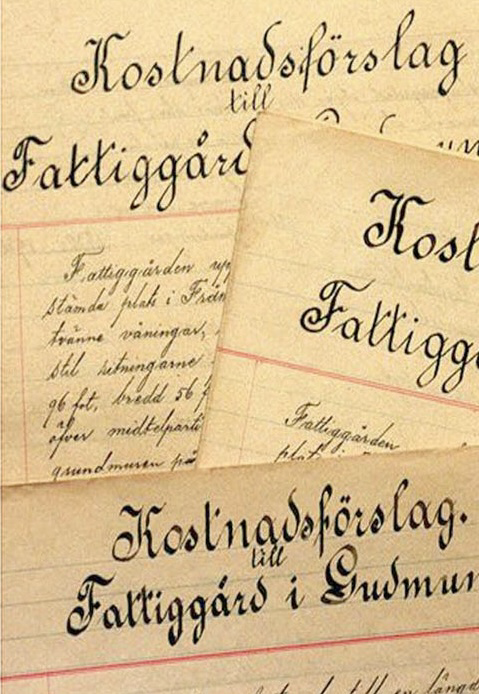 Kostnadsförslag
till
Fattiggård
Fattiggården upp
stämda plats i Från
tvänne våningar,
stil ritningarne
96 fot, bredd 56 f
öfver midtelparti
grundmuren på
Kost
Fattigg
Fattiggården
Kostnadsförslag.
till
Fattiggård i Gudmun